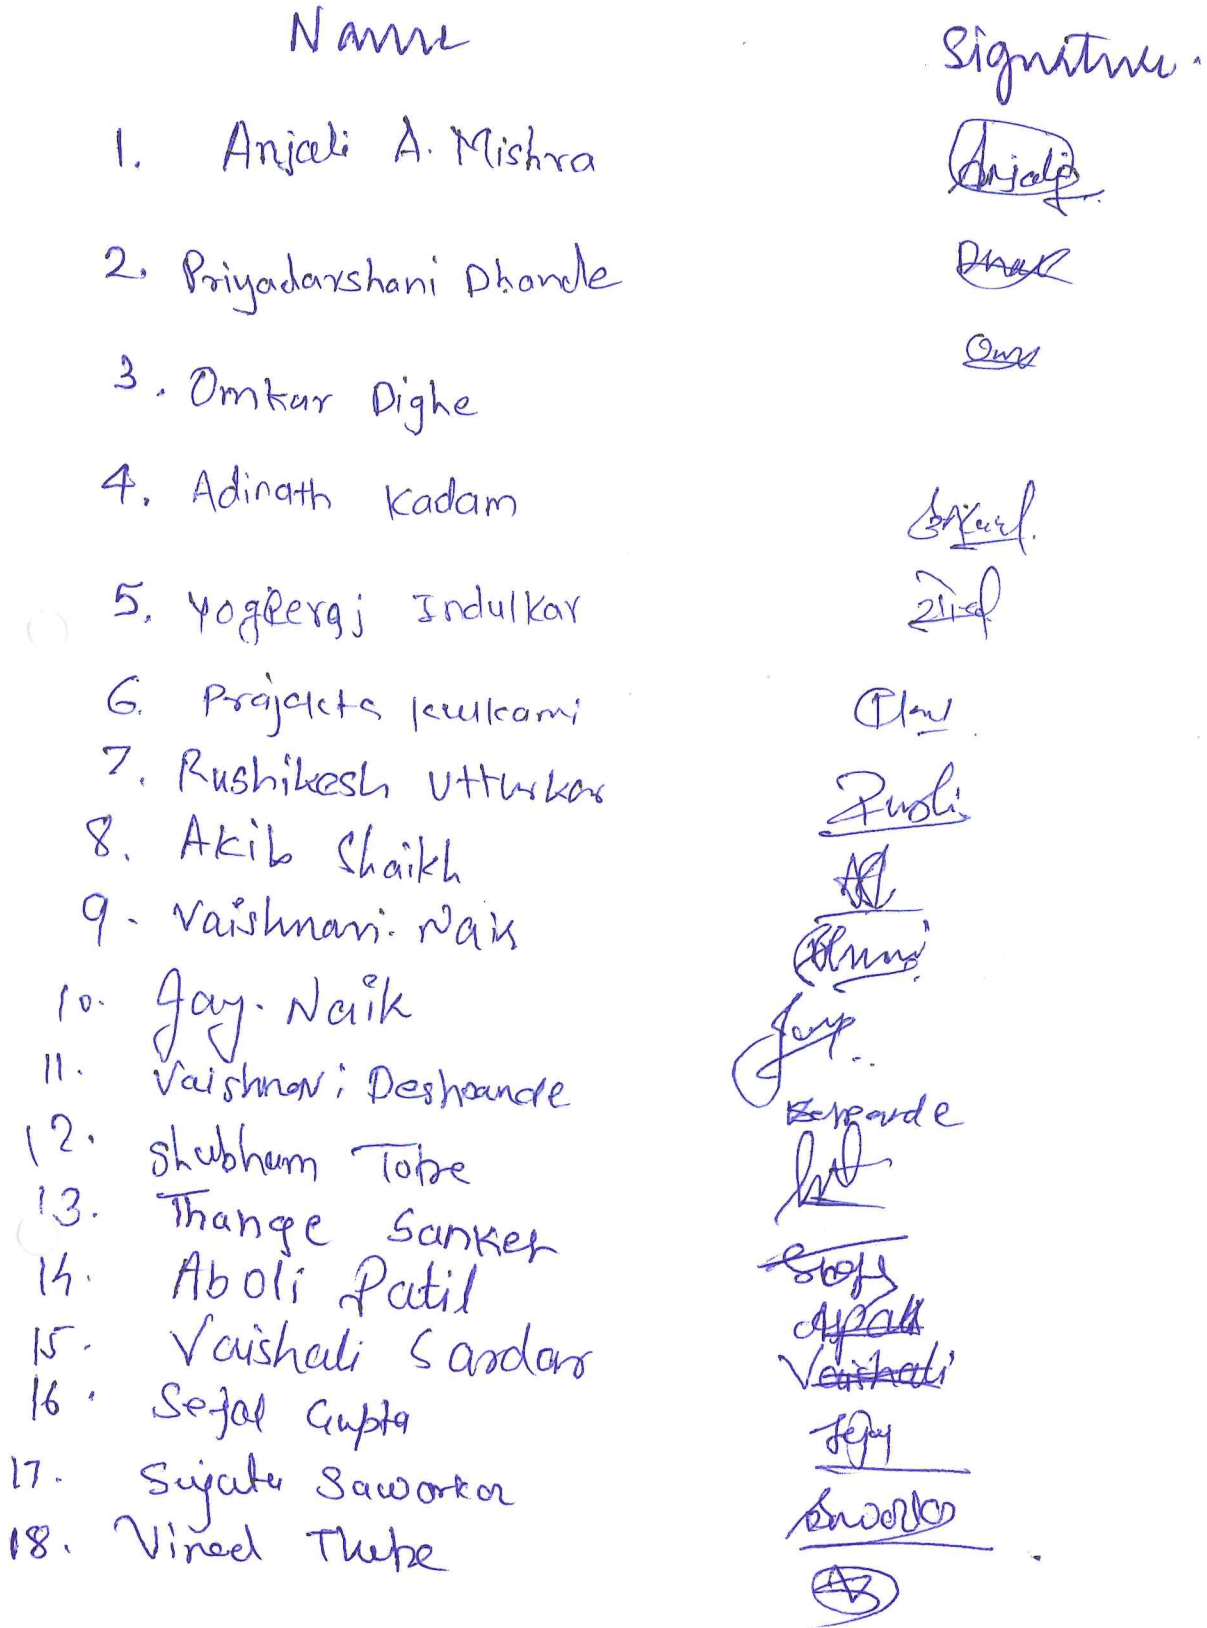 Name Signature.
1. Anjali A. Mishra Anjali
2. Priyadarshani Dhande
3. Omkar Dighe Om
4. Adinath Kadam
5. Yogeeraj Indulkar
6. Prajakta Kulkarni
7. Rushikesh Utturkar Rushi
8. Akib Shaikh
9. Vaishnavi. Naik
10. Jay. Naik Jay
11. Vaishnavi Deshpande
12. Shubham Tobe
13. Thange Sanket
14. Aboli Patil APatil
15. Vaishali Sardar Vaishali
16. Sejal Gupta
17. Sujata Saworkar
18. Vinod Thube